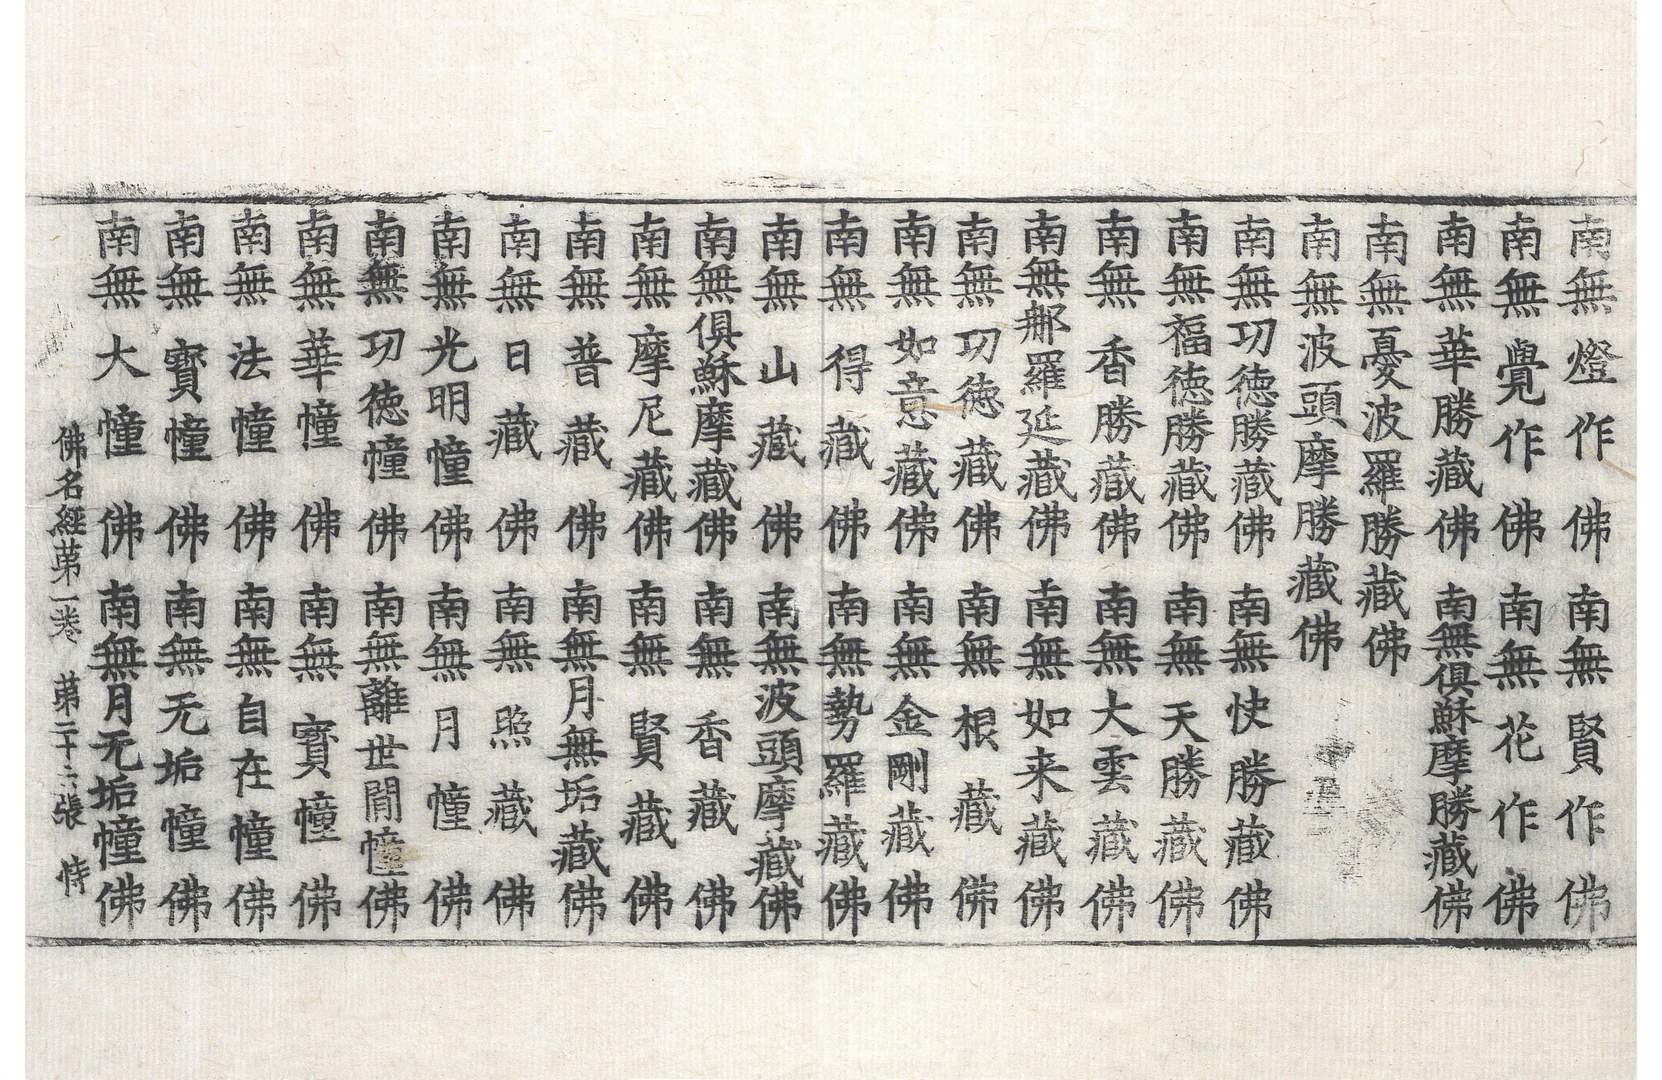 南無燈作佛南無賢作佛
南無覺作佛南無花作佛
南無華勝藏佛南無俱蘇摩勝藏佛
南無憂波羅勝藏佛
南無波頭摩勝藏佛
南無功德勝藏佛南無快勝藏佛
南無福德勝藏佛南無天勝藏佛
南無香勝藏佛南無大雲藏佛
南無那羅延藏佛南無如来藏佛
南無功德藏佛南無根藏佛
南無如意藏佛南無金剛藏佛
南無得藏佛南無勢羅藏佛
南無山藏佛南無波頭摩藏佛
南無俱蘇摩藏佛南無香藏佛
南無摩尼藏佛南無賢藏佛
南無普藏佛南無月無垢藏佛
南無日藏佛南無照藏佛
南無光明幢佛南無月幢佛
南無功德幢佛南無離世閒幢佛
南無華幢佛南無寶幢佛
南無法幢佛南無自在幢佛
南無寶幢佛南無无垢幢佛
南無大幢佛南無月无垢幢佛
佛名經第一卷 第二十六張 恃